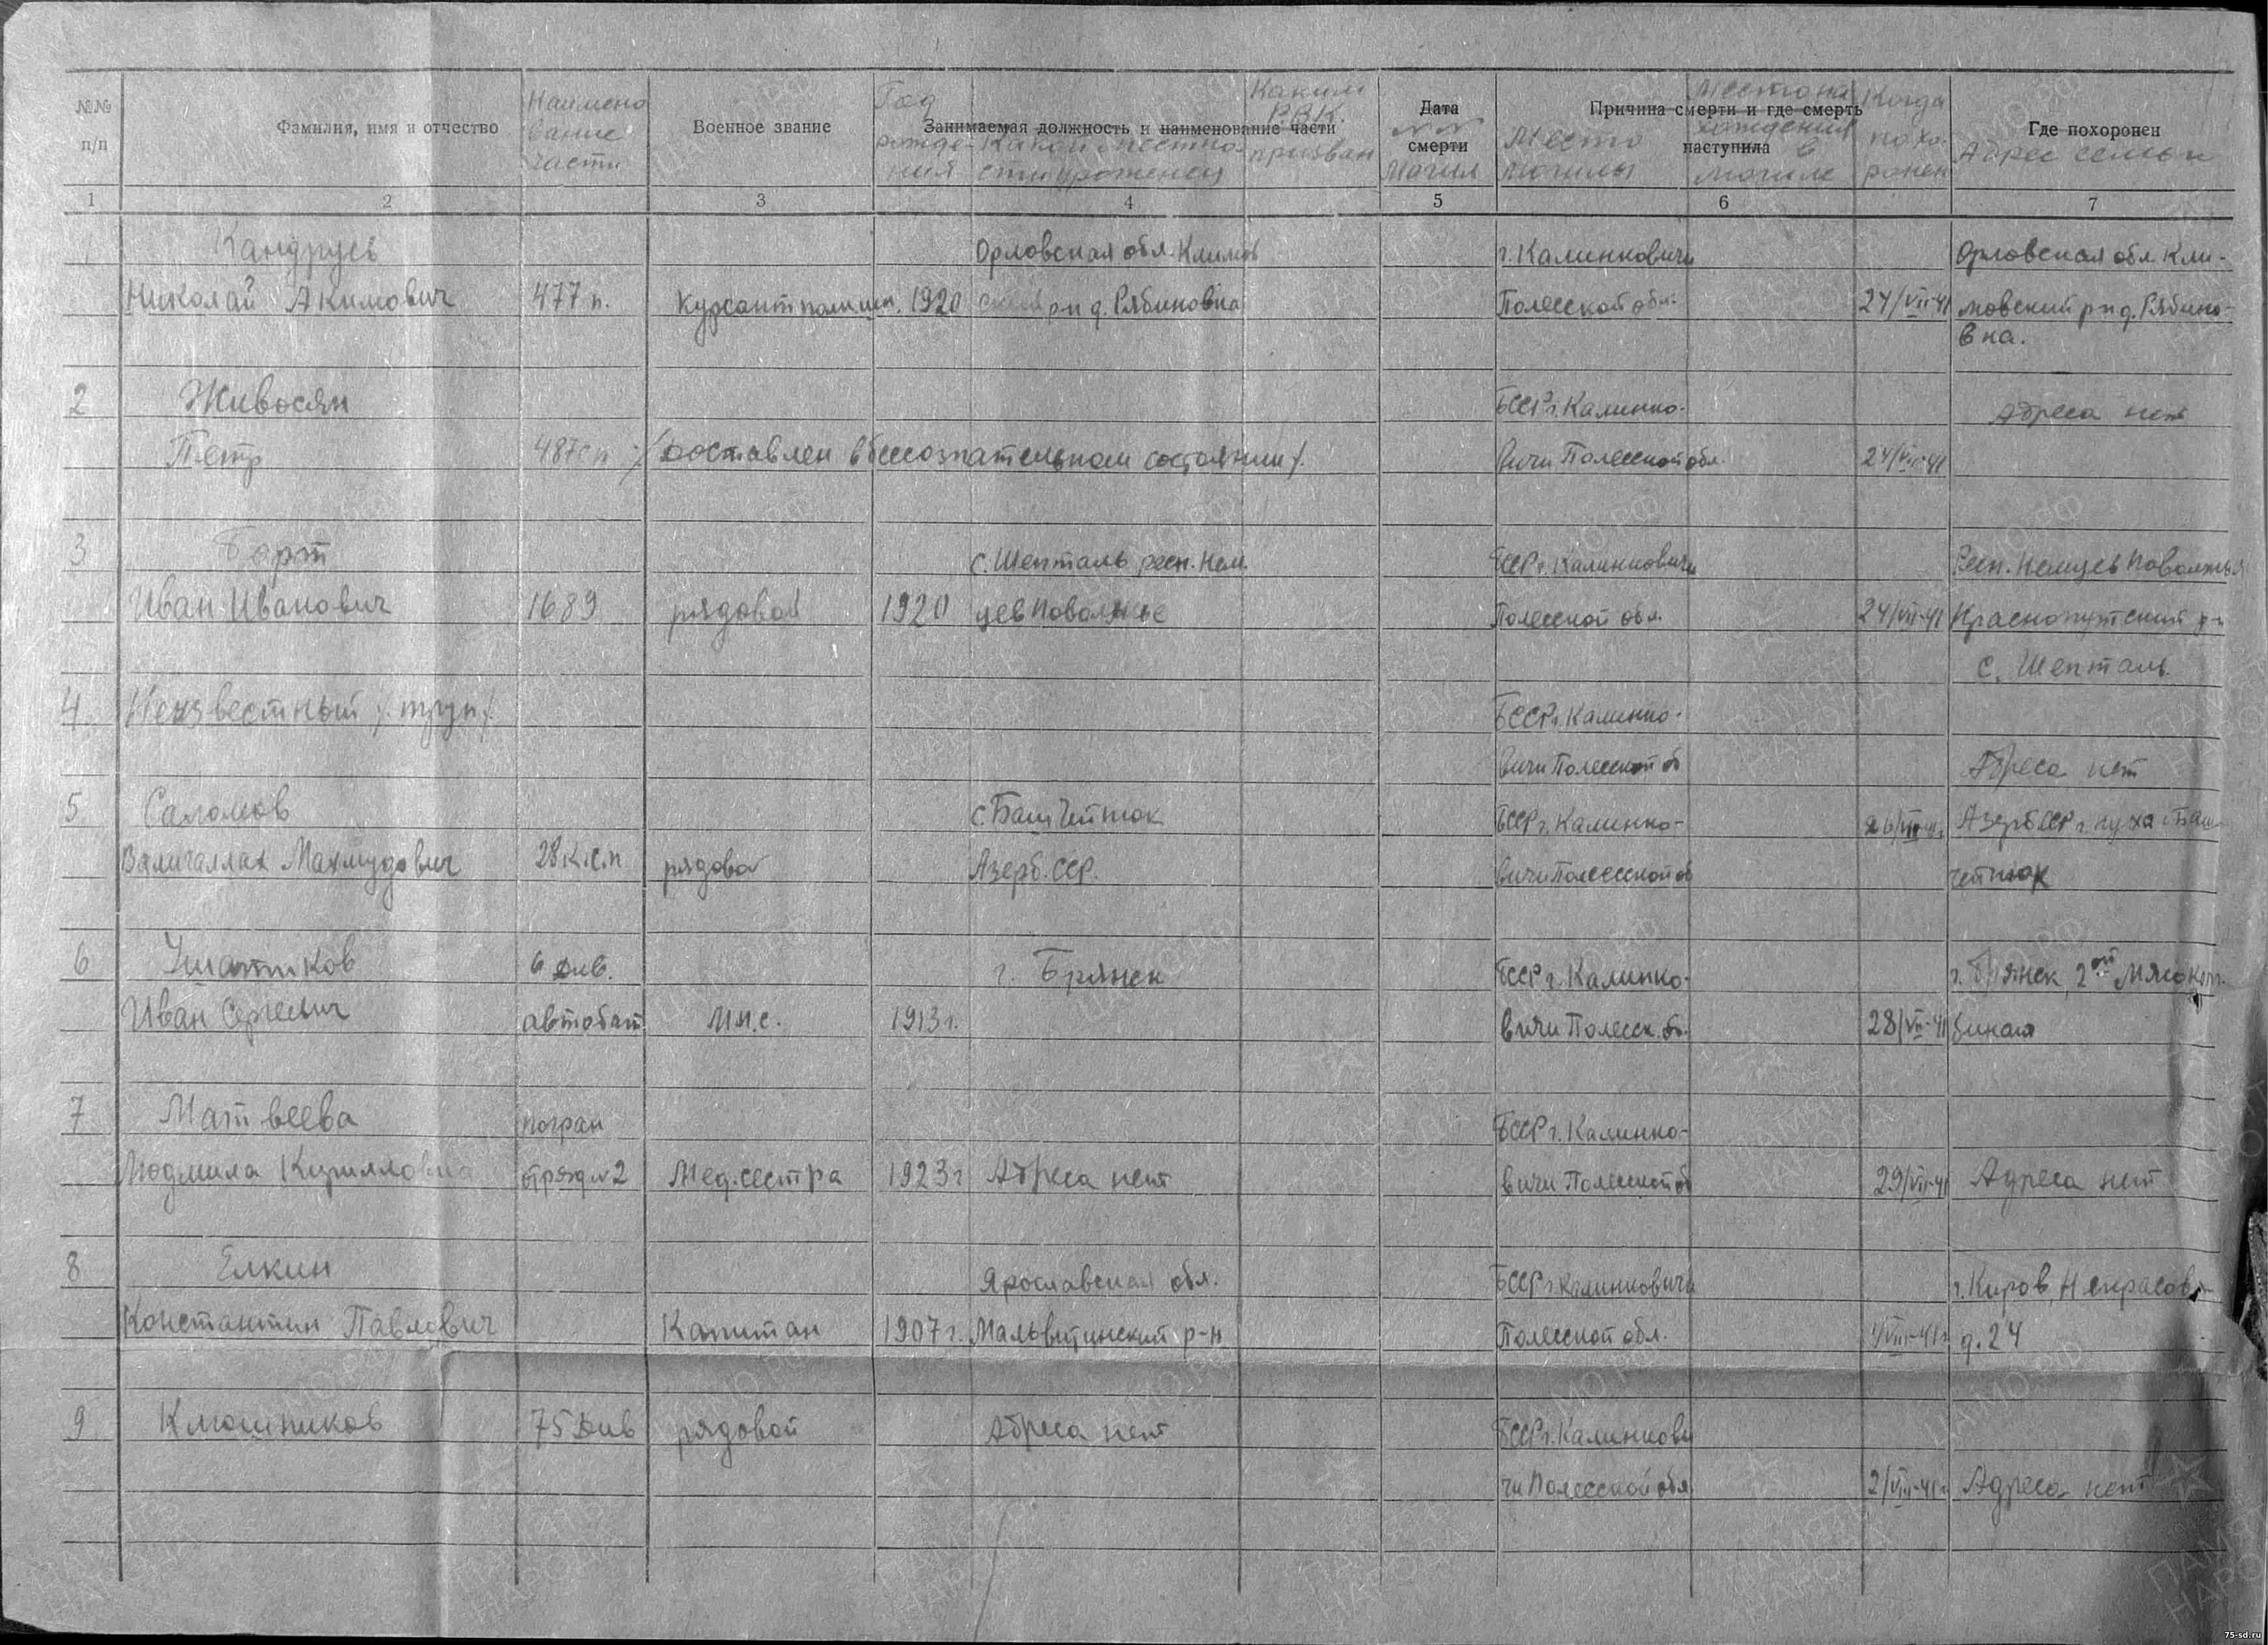 №№ п/п
Фамилия, имя и отчество
Наименование части
Военное звание
Год рождения
Занимаемая должность и наименование части
Какой местности уроженец
Каким Р.В.К. призван
Дата смерти
№№ могил
Причина смерти и где смерть наступила
Место могилы
в могиле
Когда похоронен
Где похоронен
Адрес семьи
1 2 3 4 5 6 7
1 Орловская обл. Климов г. Калинковичи Орловская обл. Кли-
Николай Акимович 477 п. Курсант 1920 ский р-н д. Рябиновка Полесской обл. 24/VII-41 мовский р-н д. Рябино-
вка.
2 Живосян БССР г. Калинко- Адреса нет
Петр 487 сп /доставлен в бессознательном состоянии/. вичи Полесской обл. 24/VII-41
3 Барт с. Шенталь респ. Нем. БССР г. Калинковичи Респ. Немцев Поволжья
Иван Иванович 1689 рядовой 1920 цев Поволжье Полесской обл. 24/VII-41 Краснокутский р-н
с. Шенталь
4. Неизвестный /труп/. БССР г. Калинко-
вичи Полесской об Адреса нет
5 Саламов с. Баш Чейтюк БССР г. Калинко- 26/VII-41 Азерб ССР г. Нуха с. Баш
Махмудович 28 к.с.п рядовой Азерб. ССР. вичи Полесской об
6 Ушатиков 6 див. г. Брянск БССР г. Калинко- г. Брянск, 2ой
Иван Сергеевич автобат М.н.с. 1913 г. вичи Полесск. об. 28/VII-41
7 Матвеева погран БССР г. Калинко-
Людмила Кирилловна отряд №2 Мед. сестра 1923 г Адреса нет вичи Полесской об 29/VII-41 Адреса нет
8 Елкин Ярославская обл. БССР г. Калинковичи г. Киров, Некрасов
Константин Павлович Капитан 1907 г. р-н Полесской обл. 1/VIII-41 г д. 24
9 Клюшников 75 див рядовой Адреса нет БССР г. Калинкови
чи Полесской обл 2/VIII-41 г Адреса нет
75-sd.ru